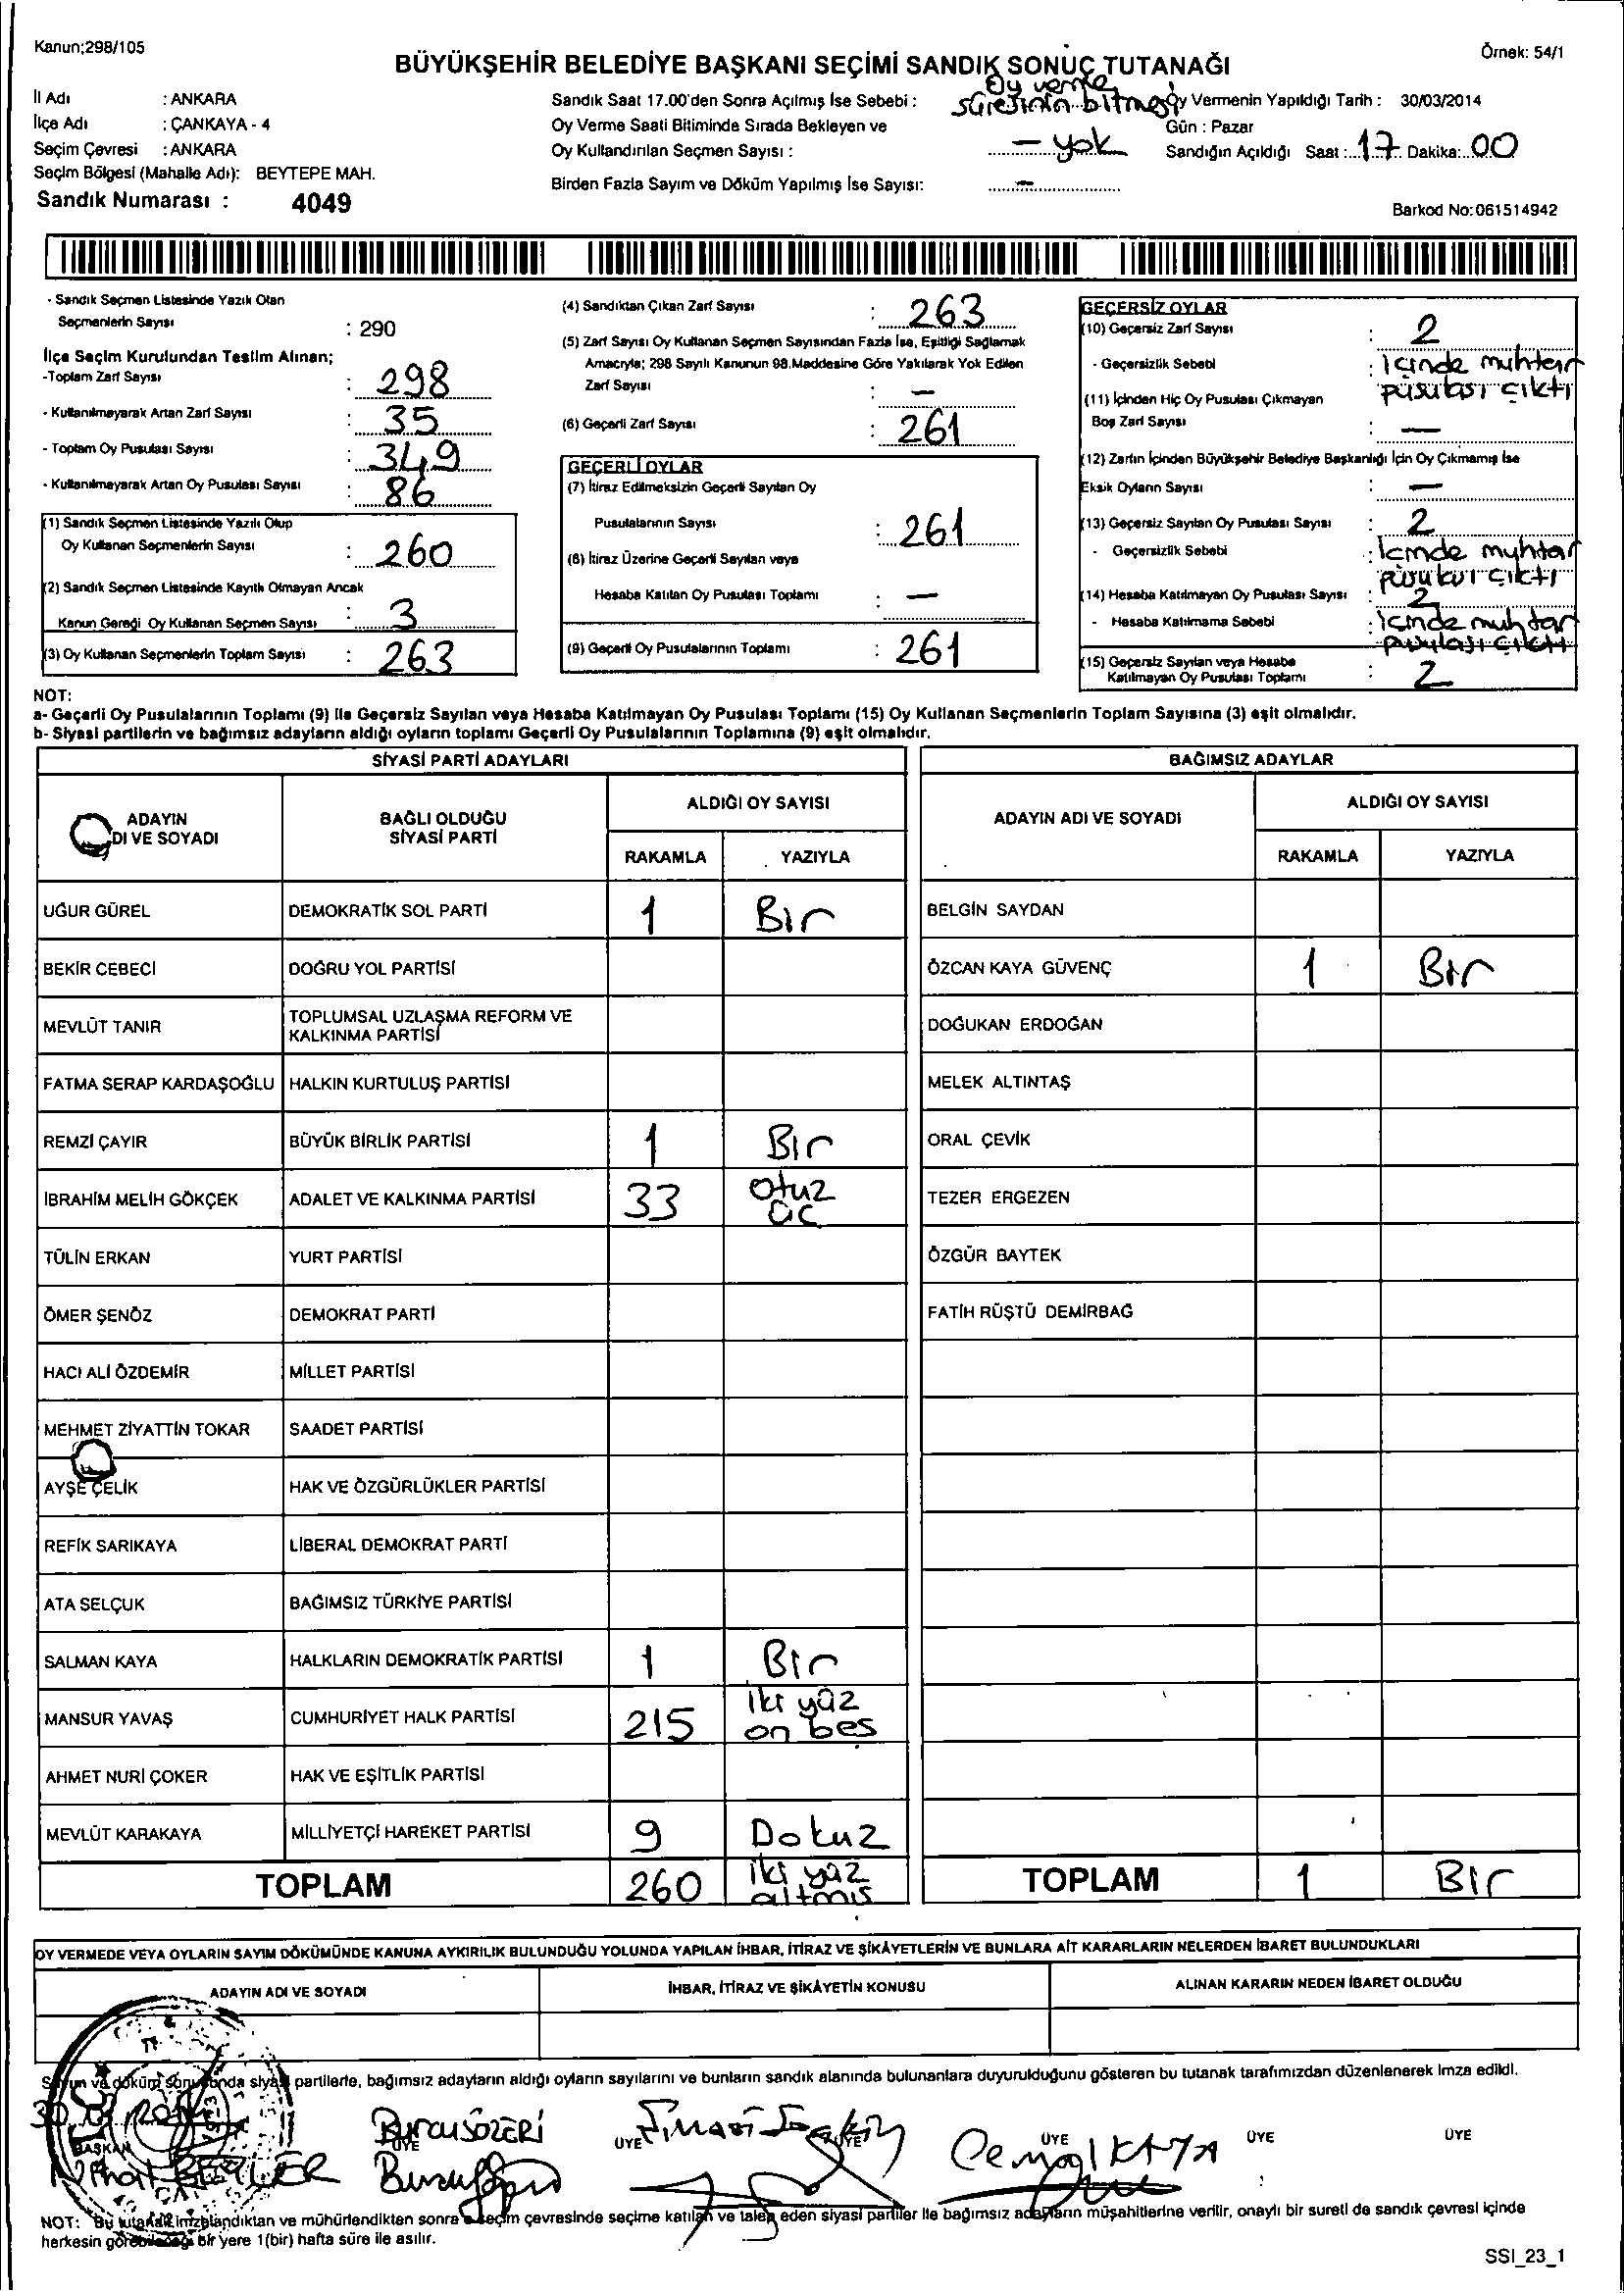 Kanun;298/105
Örnek: 54/1
BÜYÜKŞEHİR BELEDİYE BAŞKANI SEÇİMİ SANDIK SONUÇ TUTANAĞI
İl Adı : ANKARA
İlçe Adı : ÇANKAYA - 4
Seçim Çevresi : ANKARA
Seçim Bölgesi (Mahalle Adı): BEYTEPE MAH.
Sandık Numarası : 4049
Sandık Saat 17.00'den Sonra Açılmış İse Sebebi : Oy verme süresinin bitmesi
Oy Verme Saati Bitiminde Sırada Bekleyen ve
Oy Kullandırılan Seçmen Sayısı : - yok
Birden Fazla Sayım ve Döküm Yapılmış İse Sayısı: -
Oy Vermenin Yapıldığı Tarih : 30/03/2014
Gün : Pazar
Sandığın Açıldığı Saat : 17 Dakika: 00
Barkod No:061514942
- Sandık Seçmen Listesinde Yazılı Olan
Seçmenlerin Sayısı : 290
İlçe Seçim Kurulundan Teslim Alınan;
-Toplam Zarf Sayısı : 298
- Kullanılmayarak Artan Zarf Sayısı : 35
- Toplam Oy Pusulası Sayısı : 349
- Kullanılmayarak Artan Oy Pusulası Sayısı : 86
(1) Sandık Seçmen Listesinde Yazılı Olup
Oy Kullanan Seçmenlerin Sayısı : 260
(2) Sandık Seçmen Listesinde Kayıtlı Olmayan Ancak
Kanun Gereği Oy Kullanan Seçmen Sayısı : 3
(3) Oy Kullanan Seçmenlerin Toplam Sayısı : 263
(4) Sandıktan Çıkan Zarf Sayısı : 263
(5) Zarf Sayısı Oy Kullanan Seçmen Sayısından Fazla İse, Eşitliği Sağlamak
Amacıyla; 298 Sayılı Kanunun 98.Maddesine Göre Yakılarak Yok Edilen
Zarf Sayısı : -
(6) Geçerli Zarf Sayısı : 261
GEÇERLİ OYLAR
(7) İtiraz Edilmeksizin Geçerli Sayılan Oy
Pusulalarının Sayısı : 261
(8) İtiraz Üzerine Geçerli Sayılan veya
Hesaba Katılan Oy Pusulası Toplamı : -
(9) Geçerli Oy Pusulalarının Toplamı : 261
GEÇERSİZ OYLAR
(10) Geçersiz Zarf Sayısı : 2
- Geçersizlik Sebebi : içinde muhtar
pusulası çıktı
(11) İçinden Hiç Oy Pusulası Çıkmayan
Boş Zarf Sayısı : -
(12) Zarfın İçinden Büyükşehir Belediye Başkanlığı İçin Oy Çıkmamış İse
Eksik Oyların Sayısı : -
(13) Geçersiz Sayılan Oy Pusulası Sayısı : 2
- Geçersizlik Sebebi : içinde muhtar
çıktı
(14) Hesaba Katılmayan Oy Pusulası Sayısı : 2
- Hesaba Katılmama Sebebi : içinde muhtar
pusulası çıktı
(15) Geçersiz Sayılan veya Hesaba
Katılmayan Oy Pusulası Toplamı : 2
NOT:
a- Geçerli Oy Pusulalarının Toplamı (9) İle Geçersiz Sayılan veya Hesaba Katılmayan Oy Pusulası Toplamı (15) Oy Kullanan Seçmenlerin Toplam Sayısına (3) eşit olmalıdır.
b- Siyasi partilerin ve bağımsız adayların aldığı oyların toplamı Geçerli Oy Pusulalarının Toplamına (9) eşit olmalıdır.
SİYASİ PARTİ ADAYLARI
ADAYIN
DI VE SOYADI
BAĞLI OLDUĞU
SİYASİ PARTİ
ALDIĞI OY SAYISI
RAKAMLA YAZIYLA
UĞUR GÜREL DEMOKRATİK SOL PARTİ 1 Bir
BEKİR CEBECİ DOĞRU YOL PARTİSİ
MEVLÜT TANIR TOPLUMSAL UZLAŞMA REFORM VE
KALKINMA PARTİSİ
FATMA SERAP KARDAŞOĞLU HALKIN KURTULUŞ PARTİSİ
REMZİ ÇAYIR BÜYÜK BİRLİK PARTİSİ 1 Bir
İBRAHİM MELİH GÖKÇEK ADALET VE KALKINMA PARTİSİ 33 otuz
üç
TÜLİN ERKAN YURT PARTİSİ
ÖMER ŞENÖZ DEMOKRAT PARTİ
HACI ALİ ÖZDEMİR MİLLET PARTİSİ
MEHMET ZİYATTİN TOKAR SAADET PARTİSİ
AYŞE ÇELİK HAK VE ÖZGÜRLÜKLER PARTİSİ
REFİK SARIKAYA LİBERAL DEMOKRAT PARTİ
ATA SELÇUK BAĞIMSIZ TÜRKİYE PARTİSİ
SALMAN KAYA HALKLARIN DEMOKRATİK PARTİSİ 1 Bir
MANSUR YAVAŞ CUMHURİYET HALK PARTİSİ 215 iki yüz
on beş
AHMET NURİ ÇOKER HAK VE EŞİTLİK PARTİSİ
MEVLÜT KARAKAYA MİLLİYETÇİ HAREKET PARTİSİ 9 Dokuz
TOPLAM 260 iki yüz
altmıs
BAĞIMSIZ ADAYLAR
ADAYIN ADI VE SOYADI
ALDIĞI OY SAYISI
RAKAMLA YAZIYLA
BELGİN SAYDAN
ÖZCAN KAYA GÜVENÇ 1 Bir
DOĞUKAN ERDOĞAN
MELEK ALTINTAŞ
ORAL ÇEVİK
TEZER ERGEZEN
ÖZGÜR BAYTEK
FATİH RÜŞTÜ DEMİRBAĞ
TOPLAM 1 Bir
OY VERMEDE VEYA OYLARIN SAYIM DÖKÜMÜNDE KANUNA AYKIRILIK BULUNDUĞU YOLUNDA YAPILAN İHBAR, İTİRAZ VE ŞİKÂYETLERİN VE BUNLARA AİT KARARLARIN NELERDEN İBARET BULUNDUKLARI
ADAYIN ADI VE SOYADI
İHBAR, İTİRAZ VE ŞİKÂYETİN KONUSU
ALINAN KARARIN NEDEN İBARET OLDUĞU
Sayım ve döküm sonucunda siyasi partilerle, bağımsız adayların aldığı oyların sayılarını ve bunların sandık alanında bulunanlara duyurulduğunu gösteren bu tutanak tarafımızdan düzenlenerek imza edildi.
BAŞKAN ÜYE ÜYE ÜYE ÜYE ÜYE ÜYE
Burcu SÖZERİ
KAYA
NOT: Bu tutanak imzalandıktan ve mühürlendikten sonra seçim çevresinde seçime katılan ve talep eden siyasi partiler ile bağımsız adayların müşahitlerine verilir, onaylı bir sureti de sandık çevresi içinde
herkesin görebileceği bir yere 1(bir) hafta süre ile asılır.
SSI_23_1